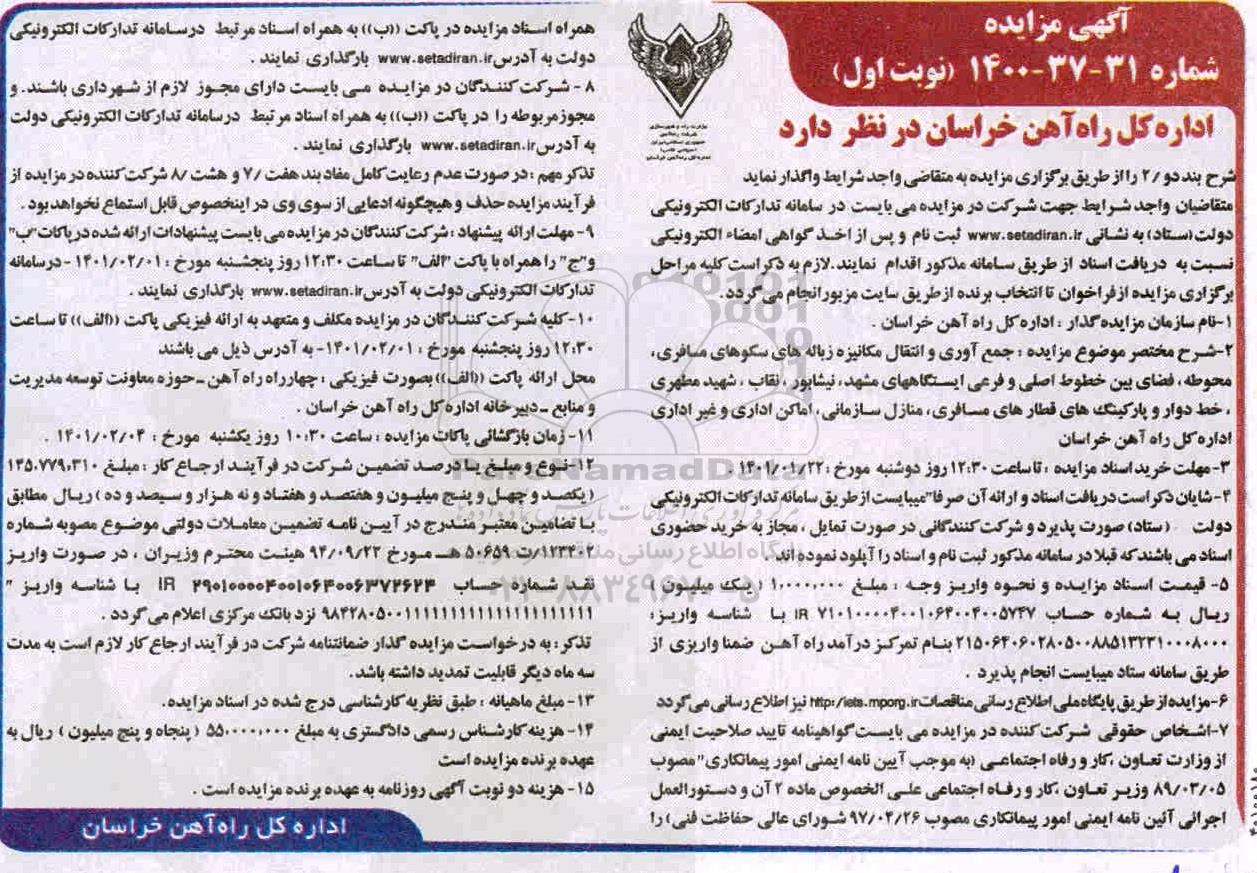 آگهی مزایده
شماره ۳۱-۳۷-۱۴۰۰ (نوبت اول)
اداره کل راه‌آهن خراسان در نظر دارد
شرح بند دو ۲/ را از طریق برگزاری مزایده به متقاضی واجد شرایط واگذار نماید
متقاضیان واجد شرایط جهت شرکت در مزایده می بایست در سامانه تدارکات الکترونیکی
دولت (ستاد) به نشانی www.setadiran.ir ثبت نام و پس از اخذ گواهی امضاء الکترونیکی
نسبت به دریافت اسناد از طریق سامانه مذکور اقدام نمایند. لازم به ذکر است کلیه مراحل
برگزاری مزایده از فراخوان تا انتخاب برنده از طریق سایت مزبور انجام می گردد.
۱-نام سازمان مزایده گذار : اداره کل راه آهن خراسان .
۲-شرح مختصر موضوع مزایده : جمع آوری و انتقال مکانیزه زباله های سکوهای مسافری،
محوطه، فضای بین خطوط اصلی و فرعی ایستگاههای مشهد، نیشابور ، نقاب ، شهید مطهری
، خط دوار و پارکینگ های قطار های مسافری، منازل سازمانی، اماکن اداری و غیر اداری
اداره کل راه آهن خراسان
۳-مهلت خرید اسناد مزایده : تا ساعت ۱۲:۳۰ روز دوشنبه مورخ : ۱۴۰۱/۰۱/۲۲ .
۴-شایان ذکر است دریافت اسناد و ارائه آن صرفا" میبایست از طریق سامانه تدارکات الکترونیکی
دولت (ستاد) صورت پذیرد و شرکت کنندگانی در صورت تمایل ، مجاز به خرید حضوری
اسناد می باشند که قبلا در سامانه مذکور ثبت نام و اسناد را آپلود نموده اند.
۵- قیمت اسناد مزایده و نحوه واریز وجه : مبلغ ۱۰۰۰۰,۰۰۰ ( یک میلیون )
ریال به شماره حساب IR ۷۱۰۱۰۰۰۰۴۰۰۱۰۶۴۰۰۴۰۰۵۷۴۷ با شناسه واریز:
۲۱۵۰۶۴۰۶۰۲۸۰۵۰۰۸۸۵۱۳۲۳۱۰۰۰۸۰۰۰ بنام تمرکز درآمد راه آهن ضمنا واریزی از
طریق سامانه ستاد میبایست انجام پذیرد .
۶-مزایده از طریق پایگاه ملی اطلاع رسانی مناقصات http:/iets.mporg.ir نیز اطلاع رسانی می گردد
۷-اشخاص حقوقی شرکت کننده در مزایده می بایست گواهینامه تایید صلاحیت ایمنی
از وزارت تعاون ،کار و رفاه اجتماعی (به موجب آیین نامه ایمنی امور پیمانکاری" مصوب
۸۹/۰۳/۰۵ وزیر تعاون ،کار و رفاه اجتماعی علی الخصوص ماده ۲ آن و دستورالعمل
اجرائی آئین نامه ایمنی امور پیمانکاری مصوب ۹۷/۰۴/۲۶ شورای عالی حفاظت فنی) را
همراه اسناد مزایده در پاکت ((ب)) به همراه اسناد مرتبط درسامانه تدارکات الکترونیکی
دولت به آدرس www.setadiran.ir بارگذاری نمایند .
۸ - شرکت کنندگان در مزایده می بایست دارای مجوز لازم از شهرداری باشند. و
مجوز مربوطه را در پاکت ((ب)) به همراه اسناد مرتبط درسامانه تدارکات الکترونیکی دولت
به آدرس www.setadiran.ir بارگذاری نمایند .
تذکر مهم : در صورت عدم رعایت کامل مفاد بند هفت ۷/ و هشت ۸/ شرکت کننده در مزایده از
فرآیند مزایده حذف و هیچگونه ادعایی از سوی وی در اینخصوص قابل استماع نخواهد بود .
۹- مهلت ارائه پیشنهاد : شرکت کنندگان در مزایده می بایست پیشنهادات ارائه شده در پاکات "ب"
و "ج" را همراه با پاکت "الف" تا ساعت ۱۲:۳۰ روز پنجشنبه مورخ : ۱۴۰۱/۰۲/۰۱ -درسامانه
تدارکات الکترونیکی دولت به آدرس www.setadiran.ir بارگذاری نمایند .
۱۰-کلیه شرکت کنندگان در مزایده مکلف و متعهد به ارائه فیزیکی پاکت ((الف)) تا ساعت
۱۲:۳۰ روز پنجشنبه مورخ : ۱۴۰۱/۰۲/۰۱- به آدرس ذیل می باشند
محل ارائه پاکت ((الف)) بصورت فیزیکی : چهارراه راه آهن -حوزه معاونت توسعه مدیریت
و منابع -دبیرخانه اداره کل راه آهن خراسان .
۱۱- زمان بازگشائی پاکات مزایده : ساعت ۱۰:۳۰ روز یکشنبه مورخ : ۱۴۰۱/۰۲/۰۴ .
۱۲-نوع و مبلغ یا درصد تضمین شرکت در فرآیند ارجاع کار : مبلغ ۱۴۵،۷۷۹،۳۱۰
(یکصد و چهل و پنج میلیون و هفتصد و هفتاد و نه هزار و سیصد و ده ) ریال مطابق
با تضامین معتبر مندرج در آیین نامه تضمین معاملات دولتی موضوع مصوبه شماره
۱۲۳۴۰۲/ت ۵۰۶۵۹ هـ مورخ ۹۴/۰۹/۲۲ هیئت محترم وزیران ، در صورت واریز
نقد شماره حساب IR ۲۹۰۱۰۰۰۰۴۰۰۱۰۶۴۰۰۶۳۷۲۶۲۴ با شناسه واریز "
۹۸۴۲۸۰۵۰۰۱۱۱۱۱۱۱۱۱۱۱۱۱۱۱۱۱۱۱۱۱ نزد بانک مرکزی اعلام می گردد .
تذکر: به درخواست مزایده گذار ضمانتنامه شرکت در فرآیند ارجاع کار لازم است به مدت
سه ماه دیگر قابلیت تمدید داشته باشد.
۱۳- مبلغ ماهیانه : طبق نظریه کارشناسی درج شده در اسناد مزایده.
۱۴- هزینه کارشناس رسمی دادگستری به مبلغ ۵۵۰۰۰۰,۰۰۰ ( پنجاه و پنج میلیون ) ریال به
عهده برنده مزایده است
۱۵- هزینه دو نوبت آگهی روزنامه به عهده برنده مزایده است .
اداره کل راه‌آهن خراسان
ParsNamadData